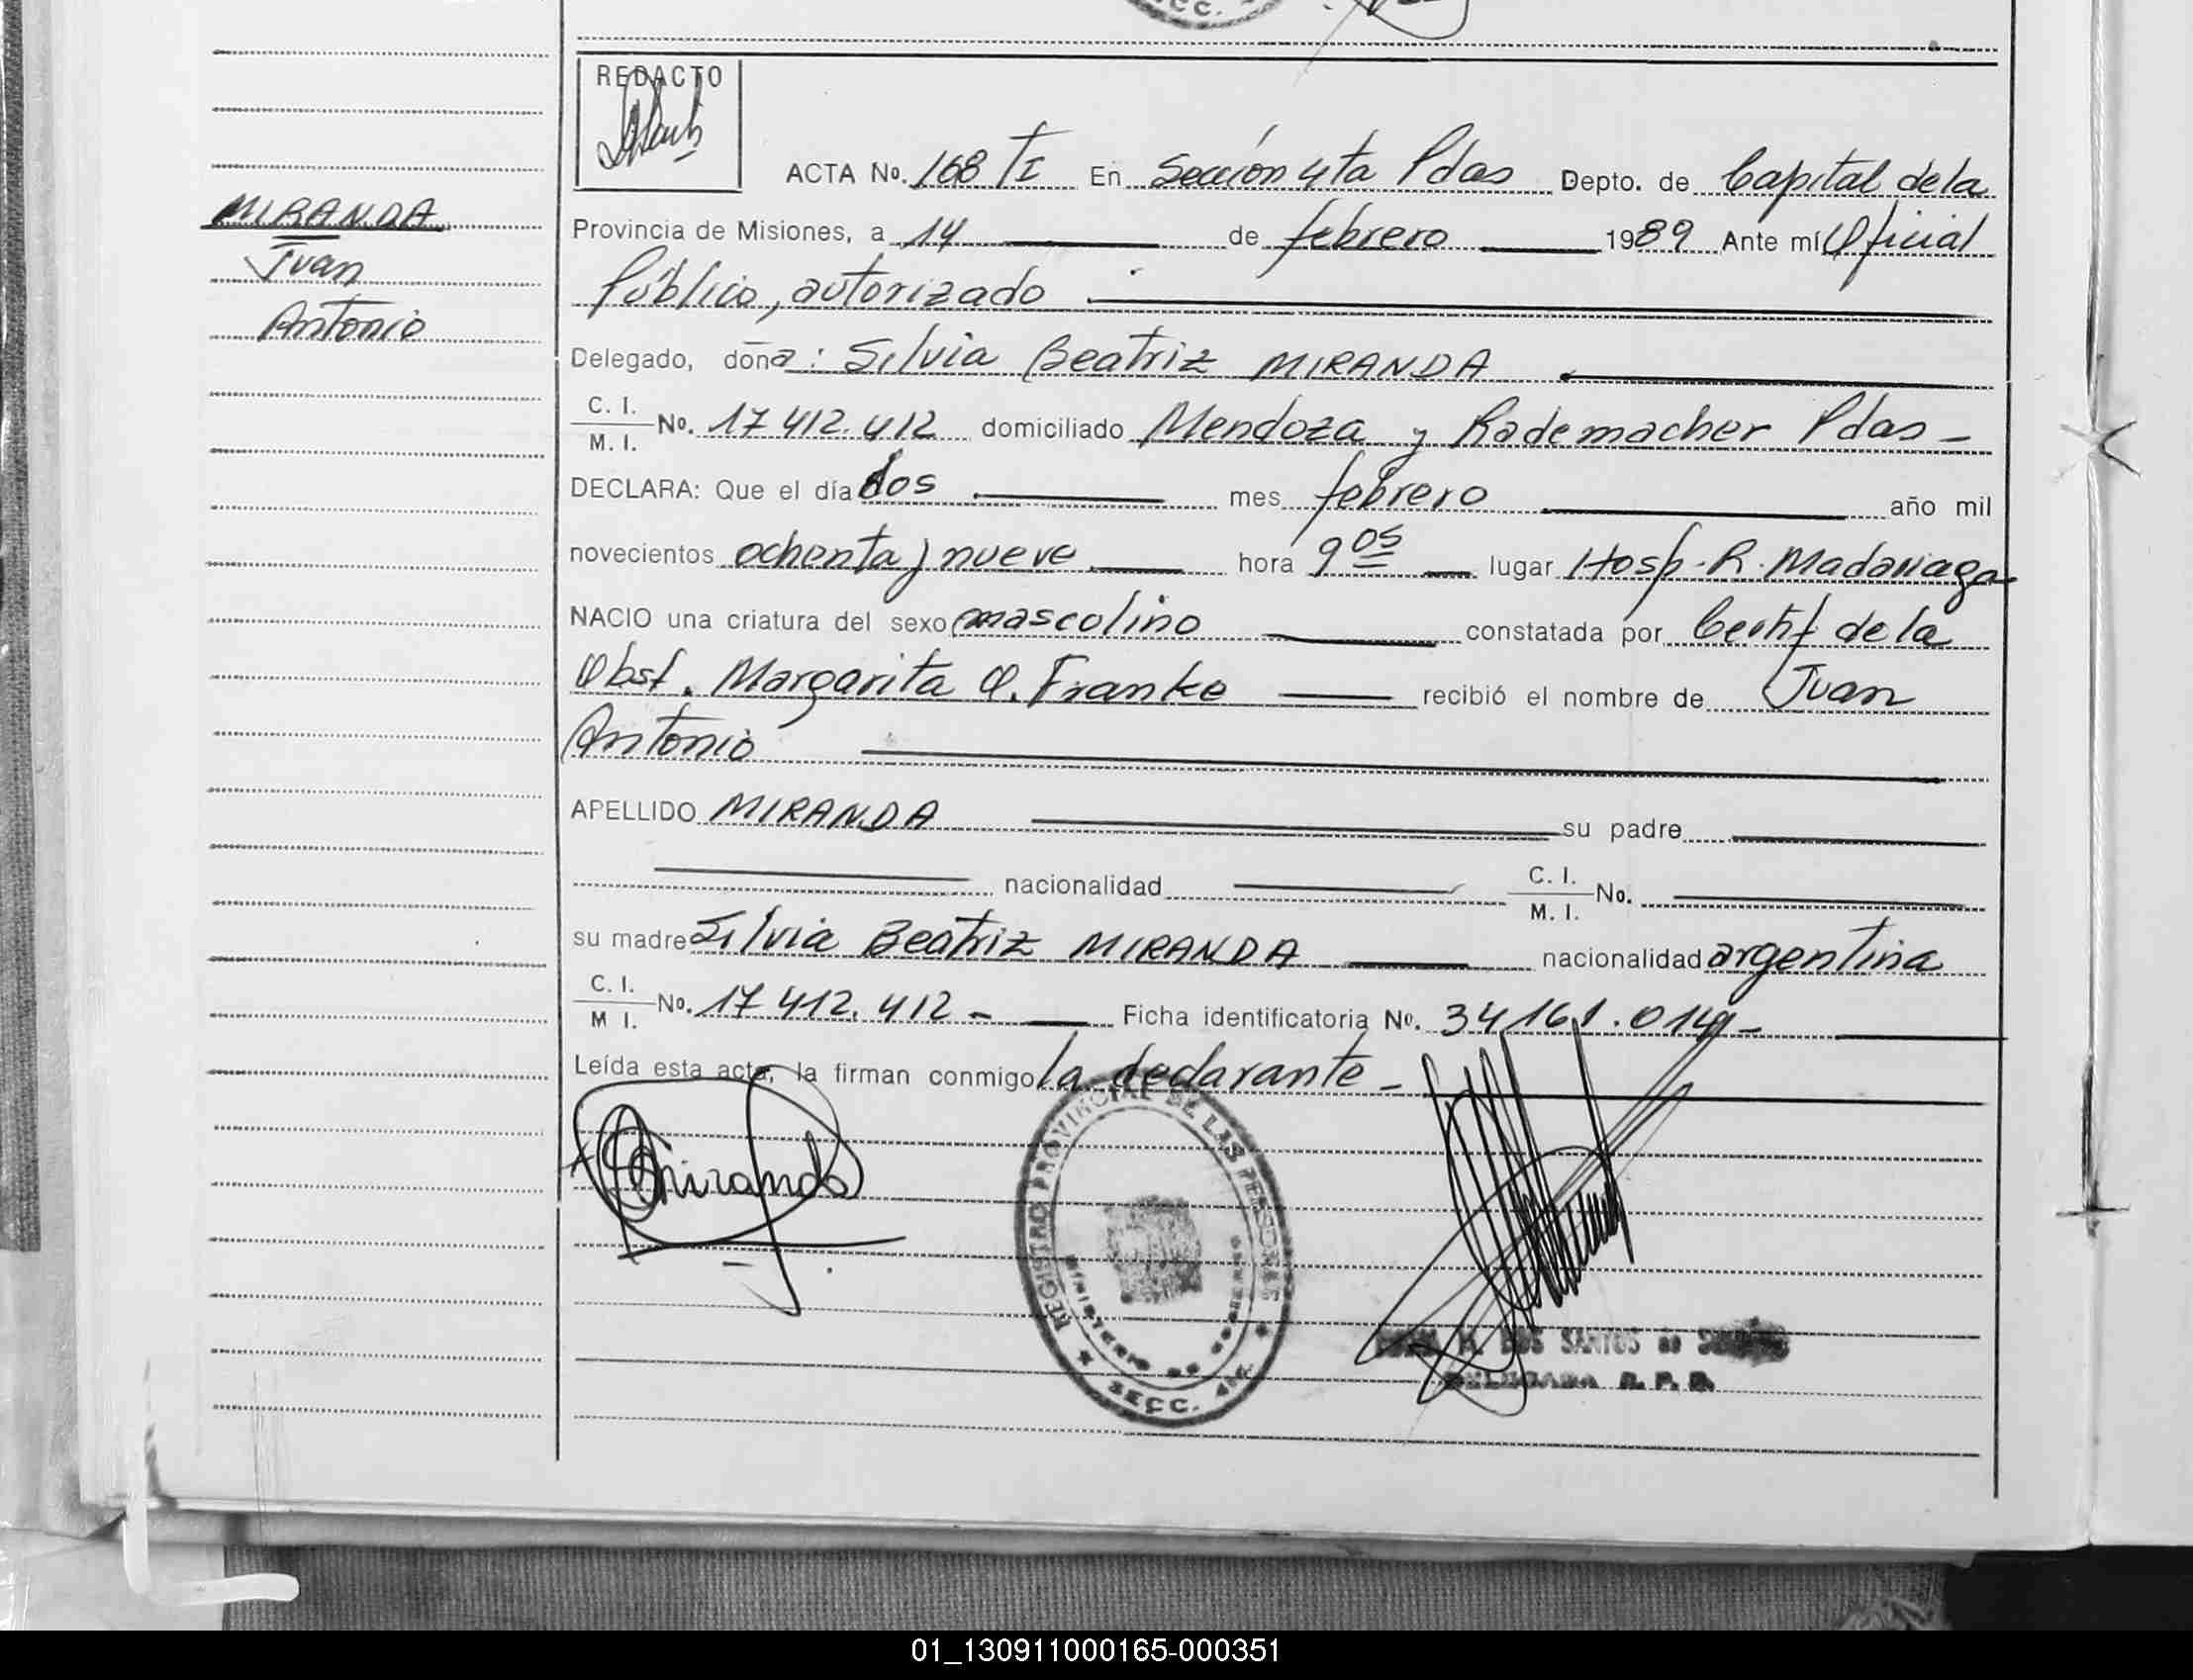 SECC.
REDACTO
ACTA No. 168 TI En Sección 4ta Pdas Depto. de Capital de la
MIRANDA
Juan
Antonio
Provincia de Misiones, a 14 de febrero 1989 Ante mí Oficial
Público, autorizado
Delegado, doña: Silvia Beatriz MIRANDA
C. I.
M. I. No. 17 412.412 domiciliado Mendoza y Rademacher Pdas -
DECLARA: Que el día dos mes febrero año mil
novecientos ochenta y nueve hora 9 05 lugar Hosp. R. Madariaga
NACIO una criatura del sexo mascolino constatada por Certif de la
Obst. Margarita O. Franke recibió el nombre de Juan
Antonio
APELLIDO MIRANDA su padre
nacionalidad C. I.
M. I. No.
su madre Silvia Beatriz MIRANDA nacionalidad argentina
C. I.
M I. No. 17 412.412 - Ficha identificatoria No. 34161.014 -
Leída esta acta, la firman conmigo la declarante -
Miranda
REGISTRO PROVINCIAL DE LAS PERSONAS
MINISTERIO DE GOBIERNO
SECC. 4ta.
M. DOS SANTOS de
DELEGADA R. P. P.
01_130911000165-000351